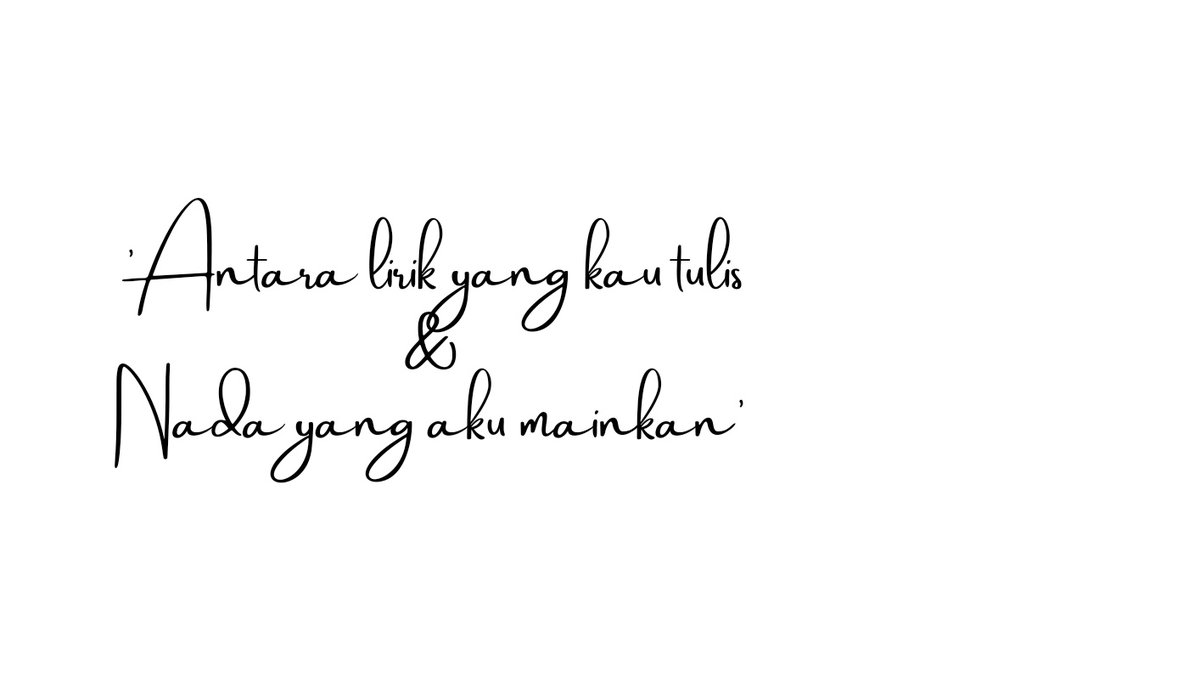 'Antara lirik yang kau tulis
&
Nada yang aku mainkan'